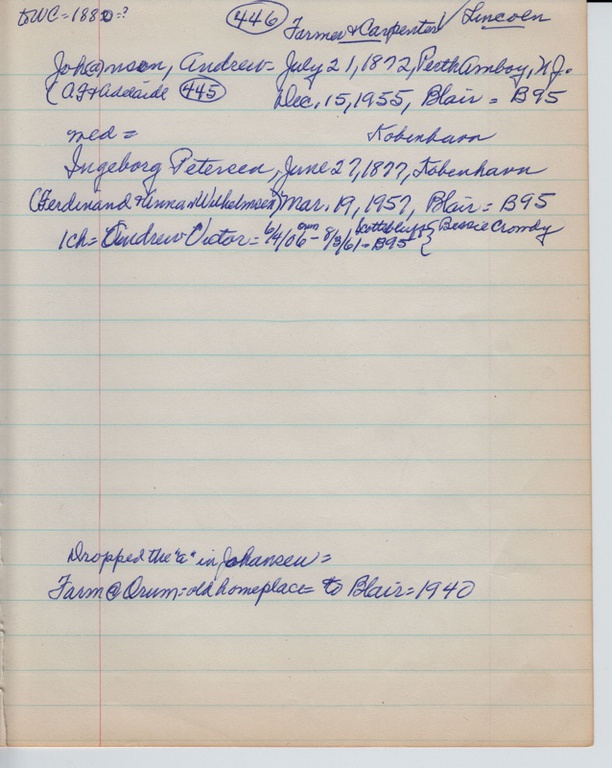 to WC = 1880 = ?
446 Farmer & Carpenter / Lincoln
Joh(a)nson, Andrew = July 21, 1872, Perth Amboy, N.J.
(A.F. & Adelaide 445 Dec. 15, 1955, Blair = B95
med = Kobenhavn
Ingeborg Petersen, June 27, 1877, Kobenhavn
(Ferdinand & Anna Wilhelmsen) Mar. 19, 1957, Blair = B95
1ch = Andrew Victor = 6/4/06 - 8/3/61 = B95 Scottsbluff { Bessie Crowdy
Dropped the "a" in Johansen =
Farm @ Orum = old homeplace = to Blair = 1940